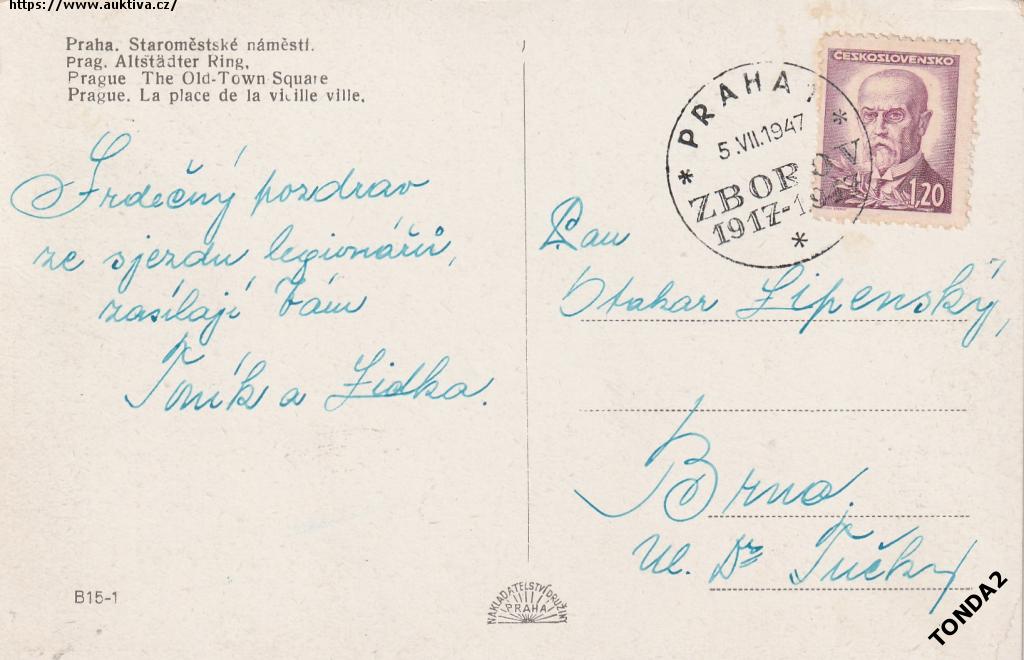 https://www.auktiva.cz/
Praha. Staroměstské náměstí.
Prag. Altstädter Ring.
Prague The Old-Town Square
Prague. La place de la vieille ville.
Srdečný pozdrav
ze sjezdu legionářů,
zasílají Vám
Toník a Lidka.
B15-1
NAKLADATELSTVÍ DRUŽINY
PRAHA
PRAHA 1
5.VII.1947
ZBOROV
1917-1947
ČESKOSLOVENSKO
1,20
Pan
Otakar Lipenský,
Brno.
Ul. Dr Tučky
TONDA2